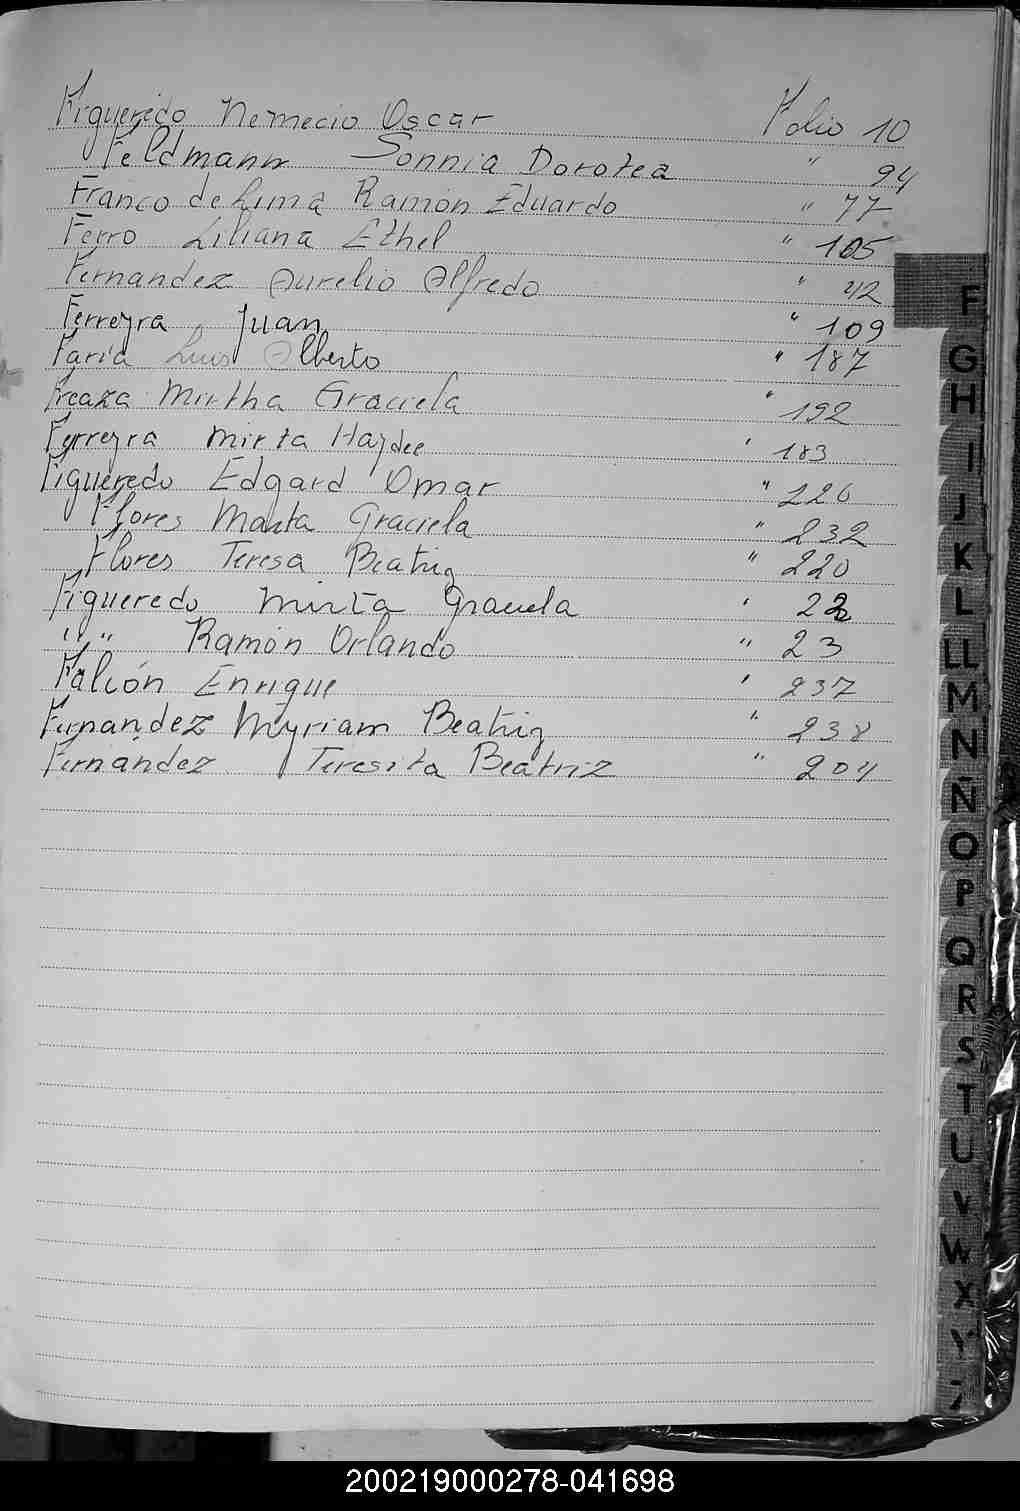 Figueredo Nemecio Oscar Folio 10
Feldmann Sonnia Dorotea " 94
Franco de Lima Ramón Eduardo " 77
Ferro Liliana Ethel " 105
Fernandez Aurelio Alfredo " 42
Ferreyra Juan " 109
Faria Luis Alberto " 187
Freaza Mirtha Graciela " 192
Ferreyra Mirta Haydee " 183
Figueredo Edgard Omar " 226
Flores Marta Graciela " 232
Flores Teresa Beatriz " 220
Figueredo Mirta Graciela "
" " Ramón Orlando " 23
Falcón Enrique " 237
Fernandez Myriam Beatriz " 238
Fernandez Teresita Beatriz " 204
F
G
H
I
J
K
L
LL
M
N
Ñ
O
P
Q
R
S
T
U
V
W
X
Y
Z
200219000278-041698